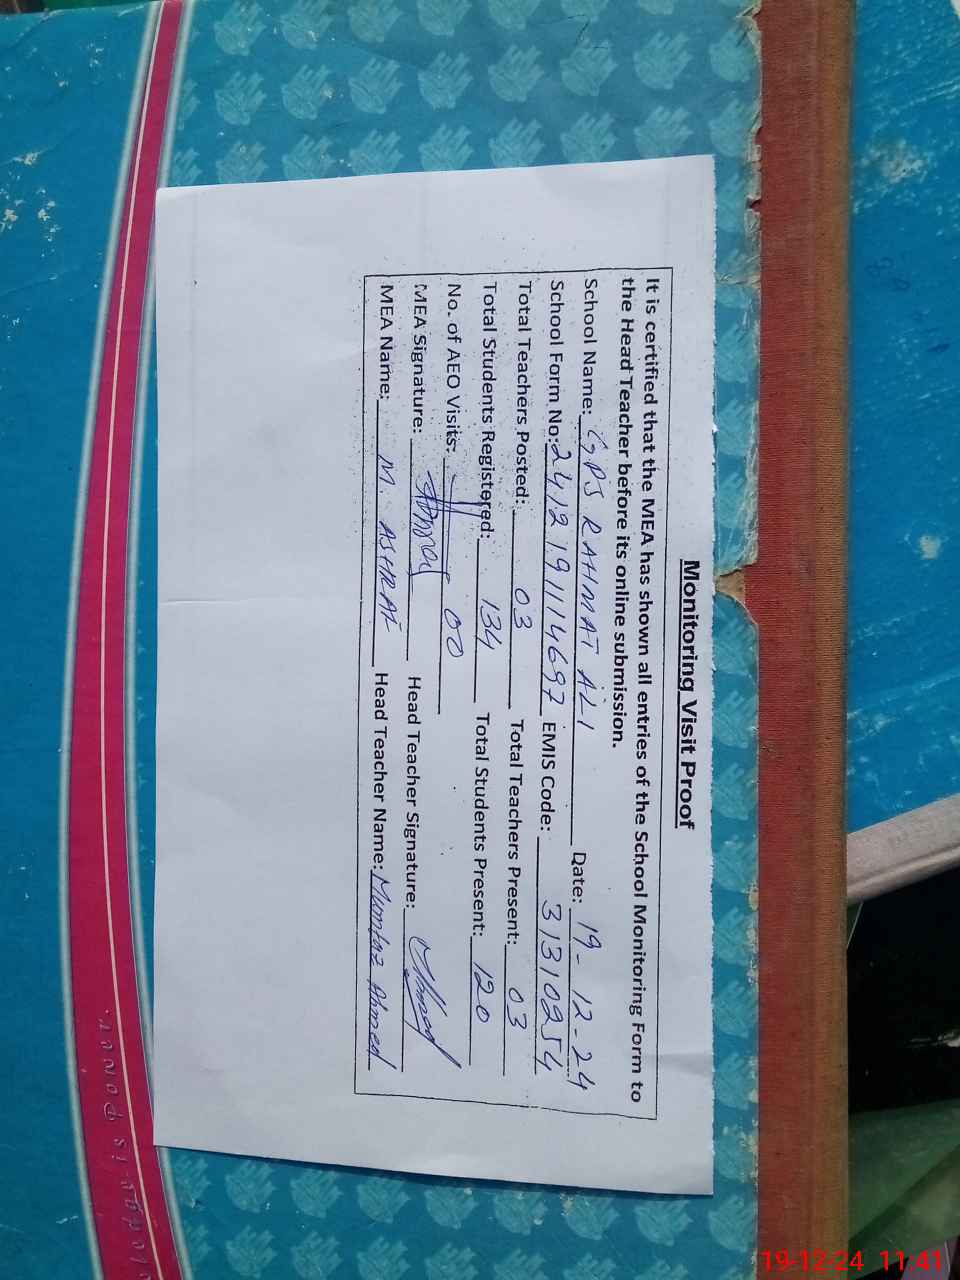 Monitoring Visit Proof
It is certified that the MEA has shown all entries of the School Monitoring Form to
the Head Teacher before its online submission.
School Name: GPS RAHMAT ALI Date: 19-12-24
School Form No: 2412191114697 EMIS Code: 31310254
Total Teachers Posted: 03 Total Teachers Present: 03
Total Students Registered: 134 Total Students Present: 120
No. of AEO Visits: 00
MEA Signature: Head Teacher Signature: Ahmed
MEA Name: M. ASHRAF Head Teacher Name: Mumtaz Ahmed
19-12-24 11:41